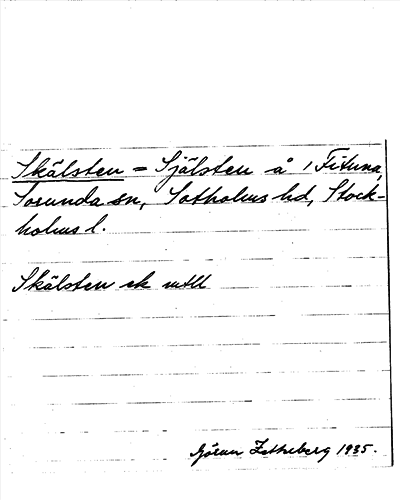 Skälsten = Själsten å / Fituna,
Sorunda sn, Sotholms hd, Stock-
holms l.
Skälsten ek mtll
Göran Zetheberg 1935.